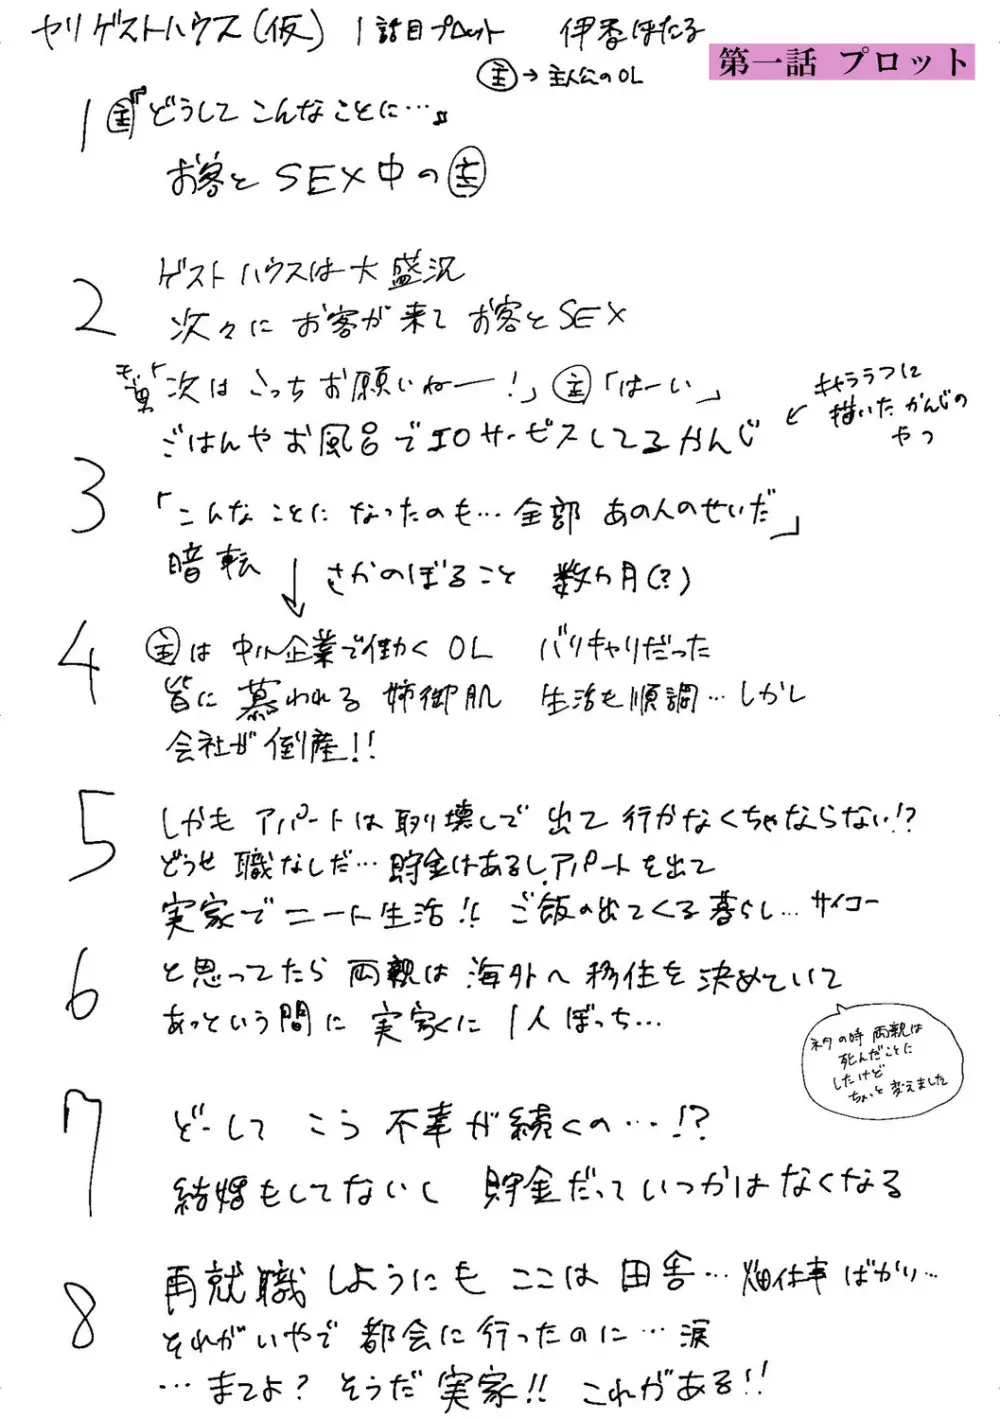 ヤリゲストハウス(仮) 1話目プロット 伊香ほたる
第一話 プロット
主→主人公のOL
1 主『どうしてこんなことに…』
お客とSEX中の主
2 ゲストハウスは大盛況
次々にお客が来てお客とSEX
モブ男「次はこっちお願いねー!」主「はーい」
ごはんやお風呂でエロサービスしてるかんじ
←キャララフに
描いたかんじの
やつ
3 「こんなことになったのも…全部あの人のせいだ」
暗転 ↓さかのぼること 数カ月(?)
4 主は中小企業で働くOL バリキャリだった
皆に慕われる姉御肌 生活も順調…しかし
会社が倒産!!
5 しかもアパートは取り壊しで出て行かなくちゃならない!?
どうせ職なしだ…貯金はあるし、アパートを出て
実家でニート生活!! ご飯の出てくる暮らし…サイコー
6 と思ってたら両親は海外へ移住を決めていて
あっという間に実家に1人ぼっち…
ネタの時両親は
死んだことに
したけど
ちょっと変えました
7 どーしてこう不幸が続くの…!?
結婚もしてないし 貯金だっていつかはなくなる
8 再就職しようにもここは田舎…畑仕事ばかり…
それがいやで都会に行ったのに…涙
…まてよ?そうだ実家!! これがある!!